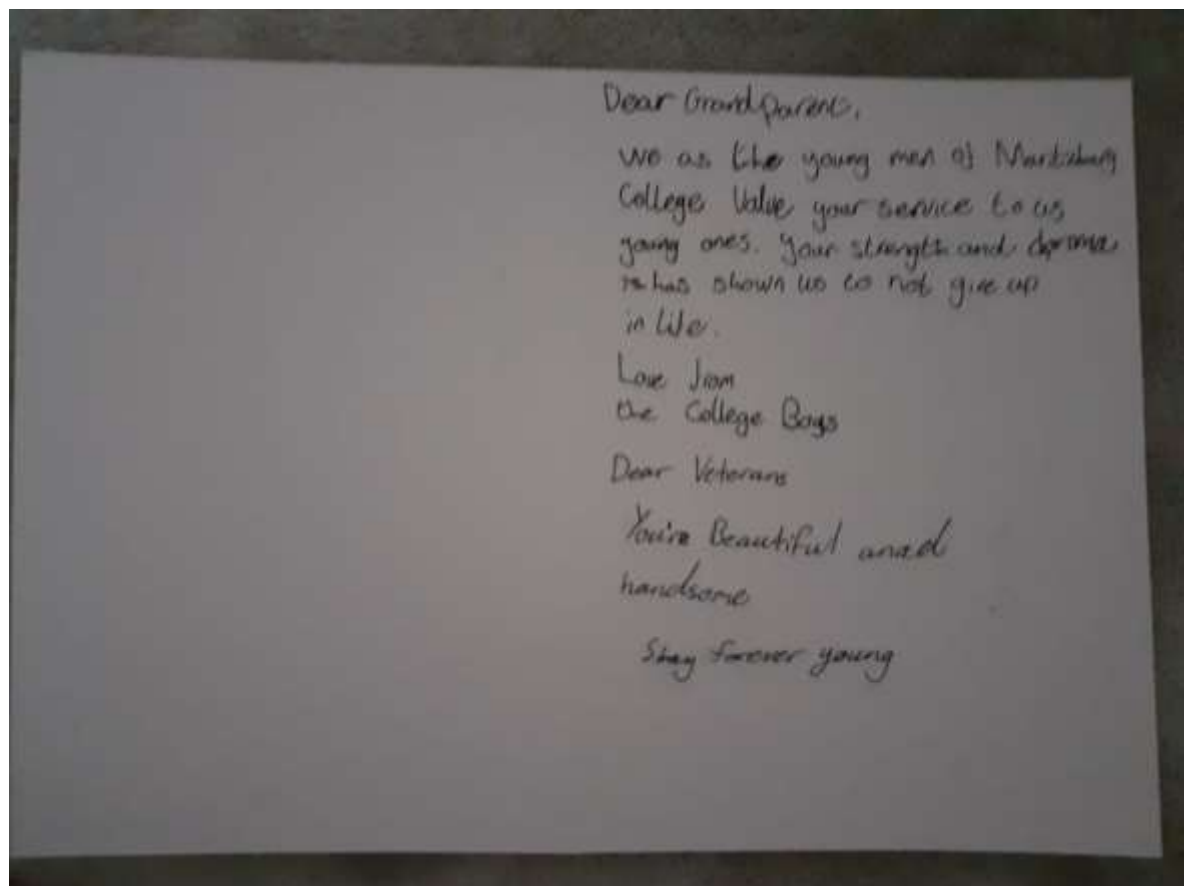 Dear Grandparent,
We as the young men of Maritzburg
College Value your service to us
young ones. Your strength and
has shown us to not give up
in life.
Love from
the College Boys
Dear Veterans
You're Beautiful and
handsome
Stay forever young